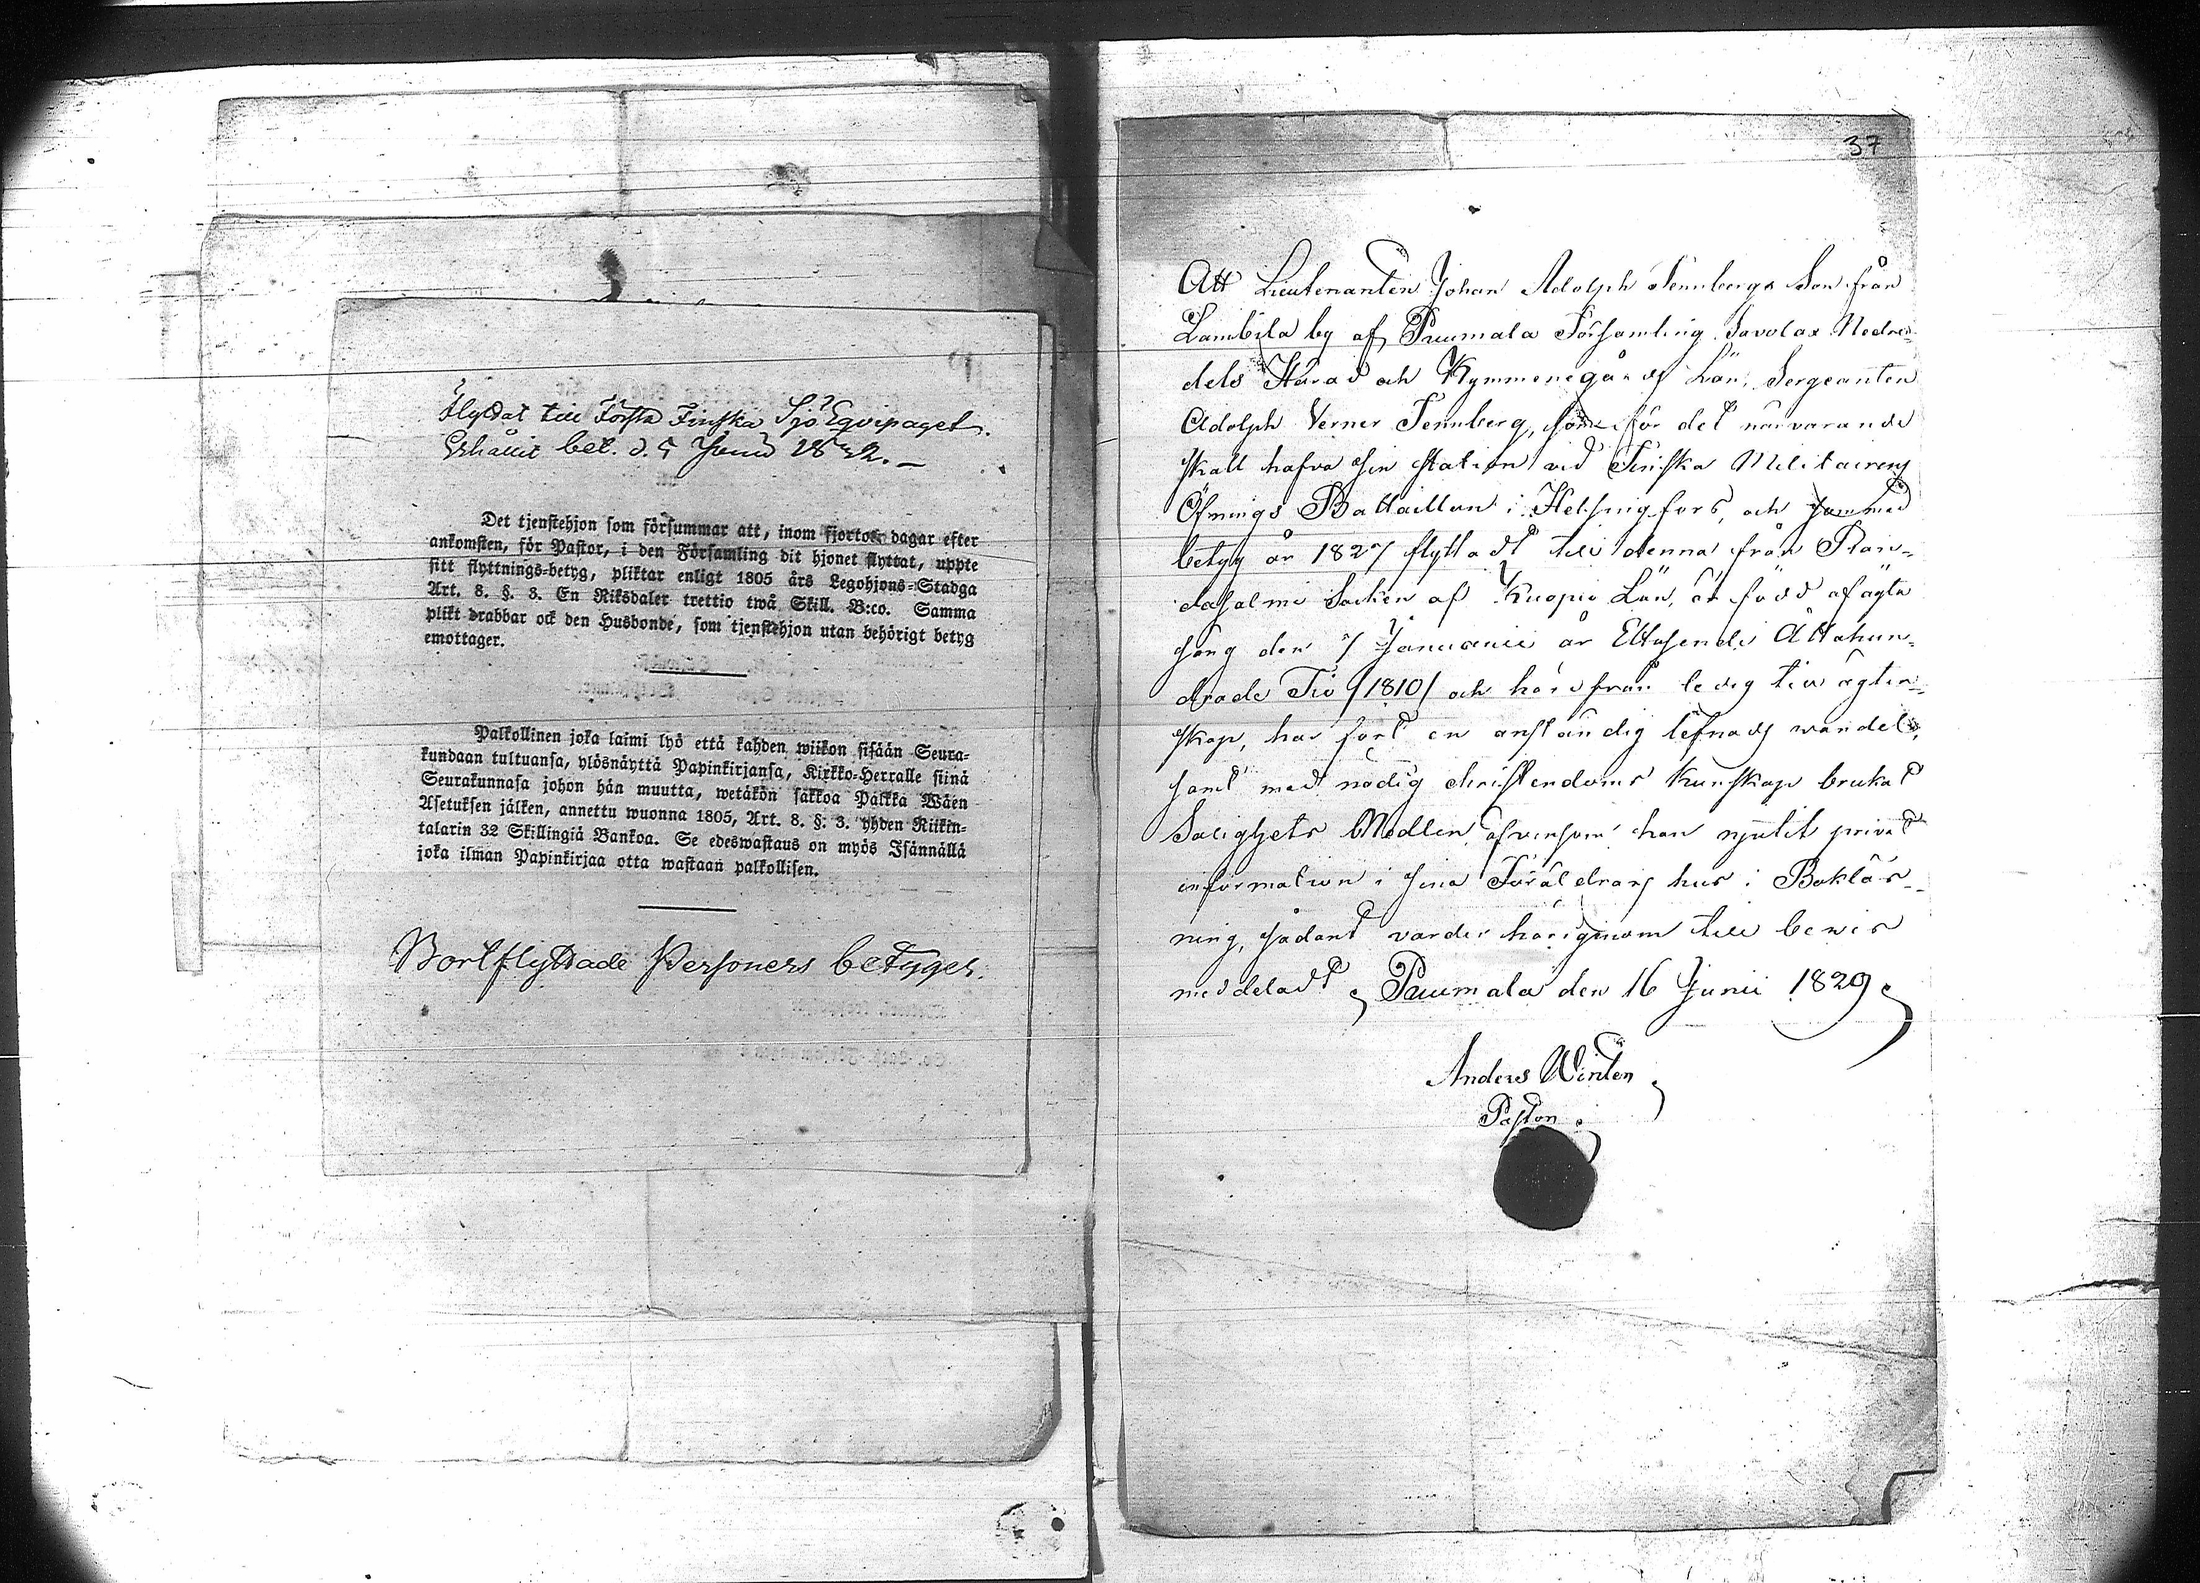 Flyttat till Första Finska Sjö Eqvipaget.
Erhållit bet. d. 5 Junii 1832.
Det tjenstehjon som försummar att, inom fjorton dagar efter
ankomsten, för Pastor, i den Församling dit hjonet flyttat, uppte
sitt flyttnings-betyg, pliktar enligt 1805 års Legohjons-Stadga
Art. 8. §. 3. En Riksdaler trettio twå Skill. B:co. Samma
plikt drabbar ock den Husbonde, som tjenstehjon utan behörigt betyg
emottager.
Palkollinen joka laimi lyö että kahden wiikon sisään Seura-
kundaan tultuansa, ylösnäyttä Papinkirjansa, Kirkko-Herralle siinä
Seurakunnasa johon hän muutta, wetäkön sakkoa Palkka Wäen
Asetuksen jälken, annettu wuonna 1805, Art. 8. §. 3. yhden Riikin-
talarin 32 Skillingiä Bankoa. Se edeswastaus on myös Isännällä
joka ilman Papinkirjaa otta wastaan palkollisen.
Bortflyttade Personers betyger.
37
Att Lieutenanten Johan Adolph Tennbergs Son från
Lambila by af Puumala Församling Savolax Nedre-
dels Härad och Kymmenegårds Län, Sergeanten
Adolph Verner Tennberg, som för det närvarande
skall hafva sin station vid Finska Militairens
Öfnings Bataillon i Helsingfors, och som med
betyg år 1827 flyttadt till denna från Ran-
dasalmi Socken af Kuopio Län, är född af ägta
säng den 7 Januarii år Ettusende Åttahun-
drade Tio /1810/ och härifrån ledig till ägten-
skap, har fört en anständig lefnads wandel,
samt med nödig christendoms Kunskap brukat
Salighets Medlen, äfvensom han njutit privat
information i sina Föräldrars hus i Boklär-
ning, sådant varder härigenom till bewis
meddeladt, Puumala den 16 Junii 1829.
Anders Winten
Pastor.